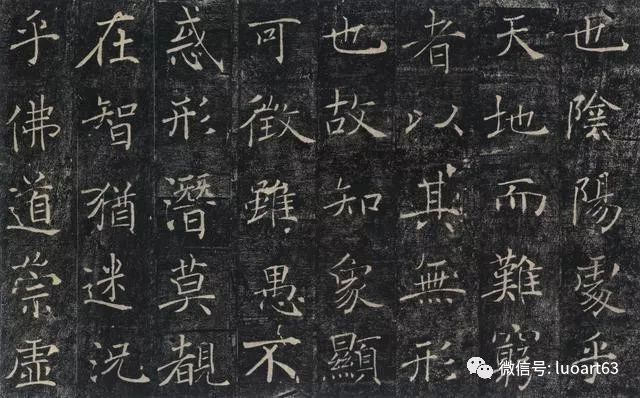 世陰陽處乎
天地而難窮
者以其無形
也故知象顯
可徵雖愚不
惑形潛莫覩
在智猶迷況
乎佛道崇虛
微信号: luoart63